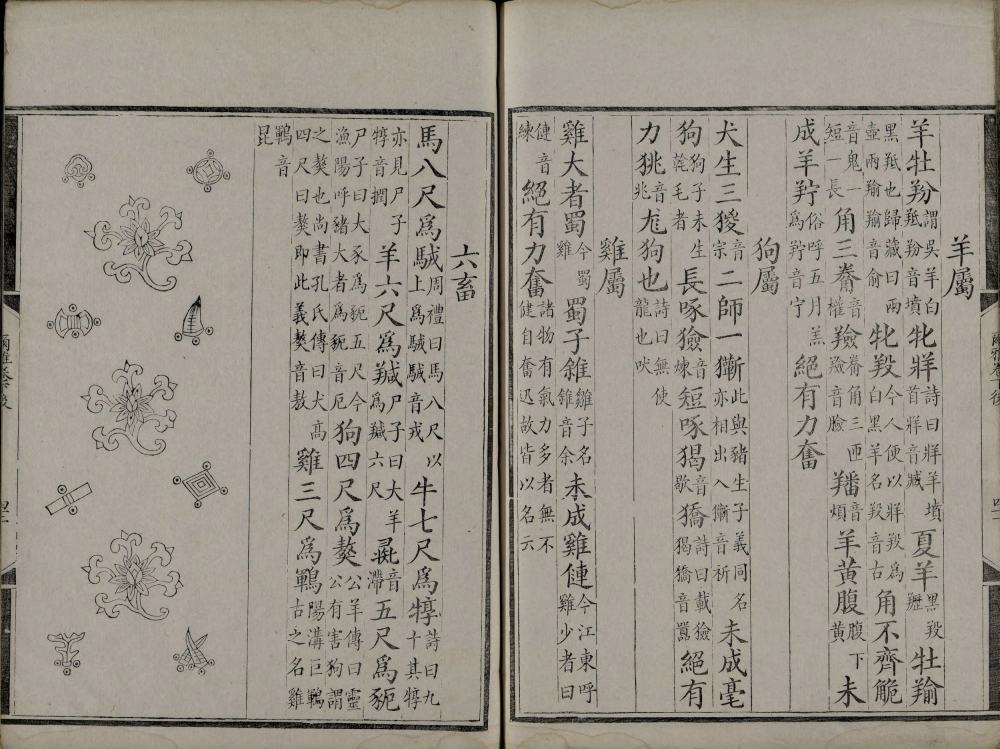 羊屬
羊牡羒謂吳羊白羝羒音墳牝牂詩曰牂羊墳首牂音臧夏羊黑羖䍽牡羭
黑羝也歸藏曰兩壺兩羭羭音俞牝羖今人便以牂羖爲白黑羊名羖音古角不齊觤
音鬼一短一長角三觠音權羷觠角三匝羷音臉羳音煩羊黃腹腹下黃未
成羊羜俗呼五月羔爲羜音宁絕有力奮
狗屬
犬生三猣音宗二師一玂此與豬生子義同名亦相出入玂音祈未成毫
狗狗子未生毛者長喙獫音煉短喙猲音歇獢詩曰載獫猲獢音囂絕有
力狣音兆尨狗也詩曰無使尨也吠
雞屬
雞大者蜀今蜀雞蜀子雓雛子名雓音余未成雞僆今江東呼雞少者曰
僆音練絕有力奮諸物有氣力多者無不健自奮迅故皆以名云
六畜
馬八尺爲駥周禮曰馬八尺以上爲駥駥音戎牛七尺爲犉詩曰九十其犉
亦見尸子犉音潤羊六尺爲羬尸子曰大羊爲羬六尺彘音滯五尺爲豟
尸子曰大豕爲豟五尺今漁陽呼豬大者爲豟音厄狗四尺爲獒公羊傳曰靈公有害狗謂
之獒也尚書孔氏傳曰犬高四尺曰獒即此義獒音敖雞三尺爲鶤陽溝巨鶤古之名雞
鶤音昆